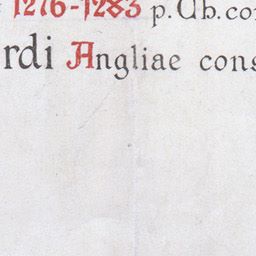 1276-1283 p.Ub.con
rdi Angliae cons